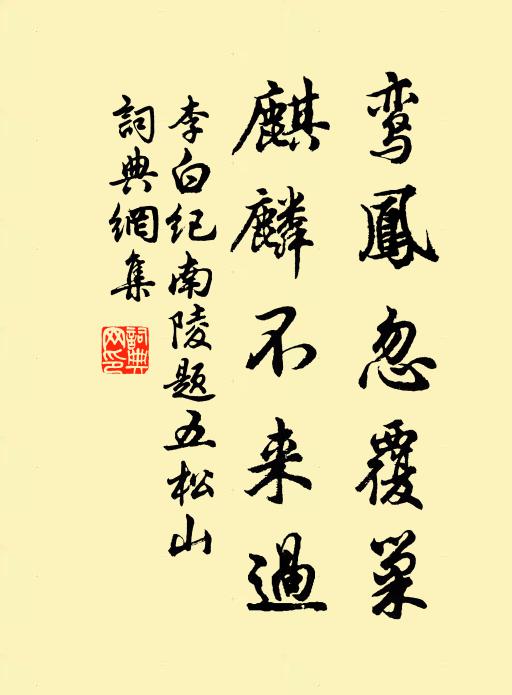 鸾鳳忽覆巢
麒麟不来過
李白纪南陵题五松山
詞典網集
詞典
网印